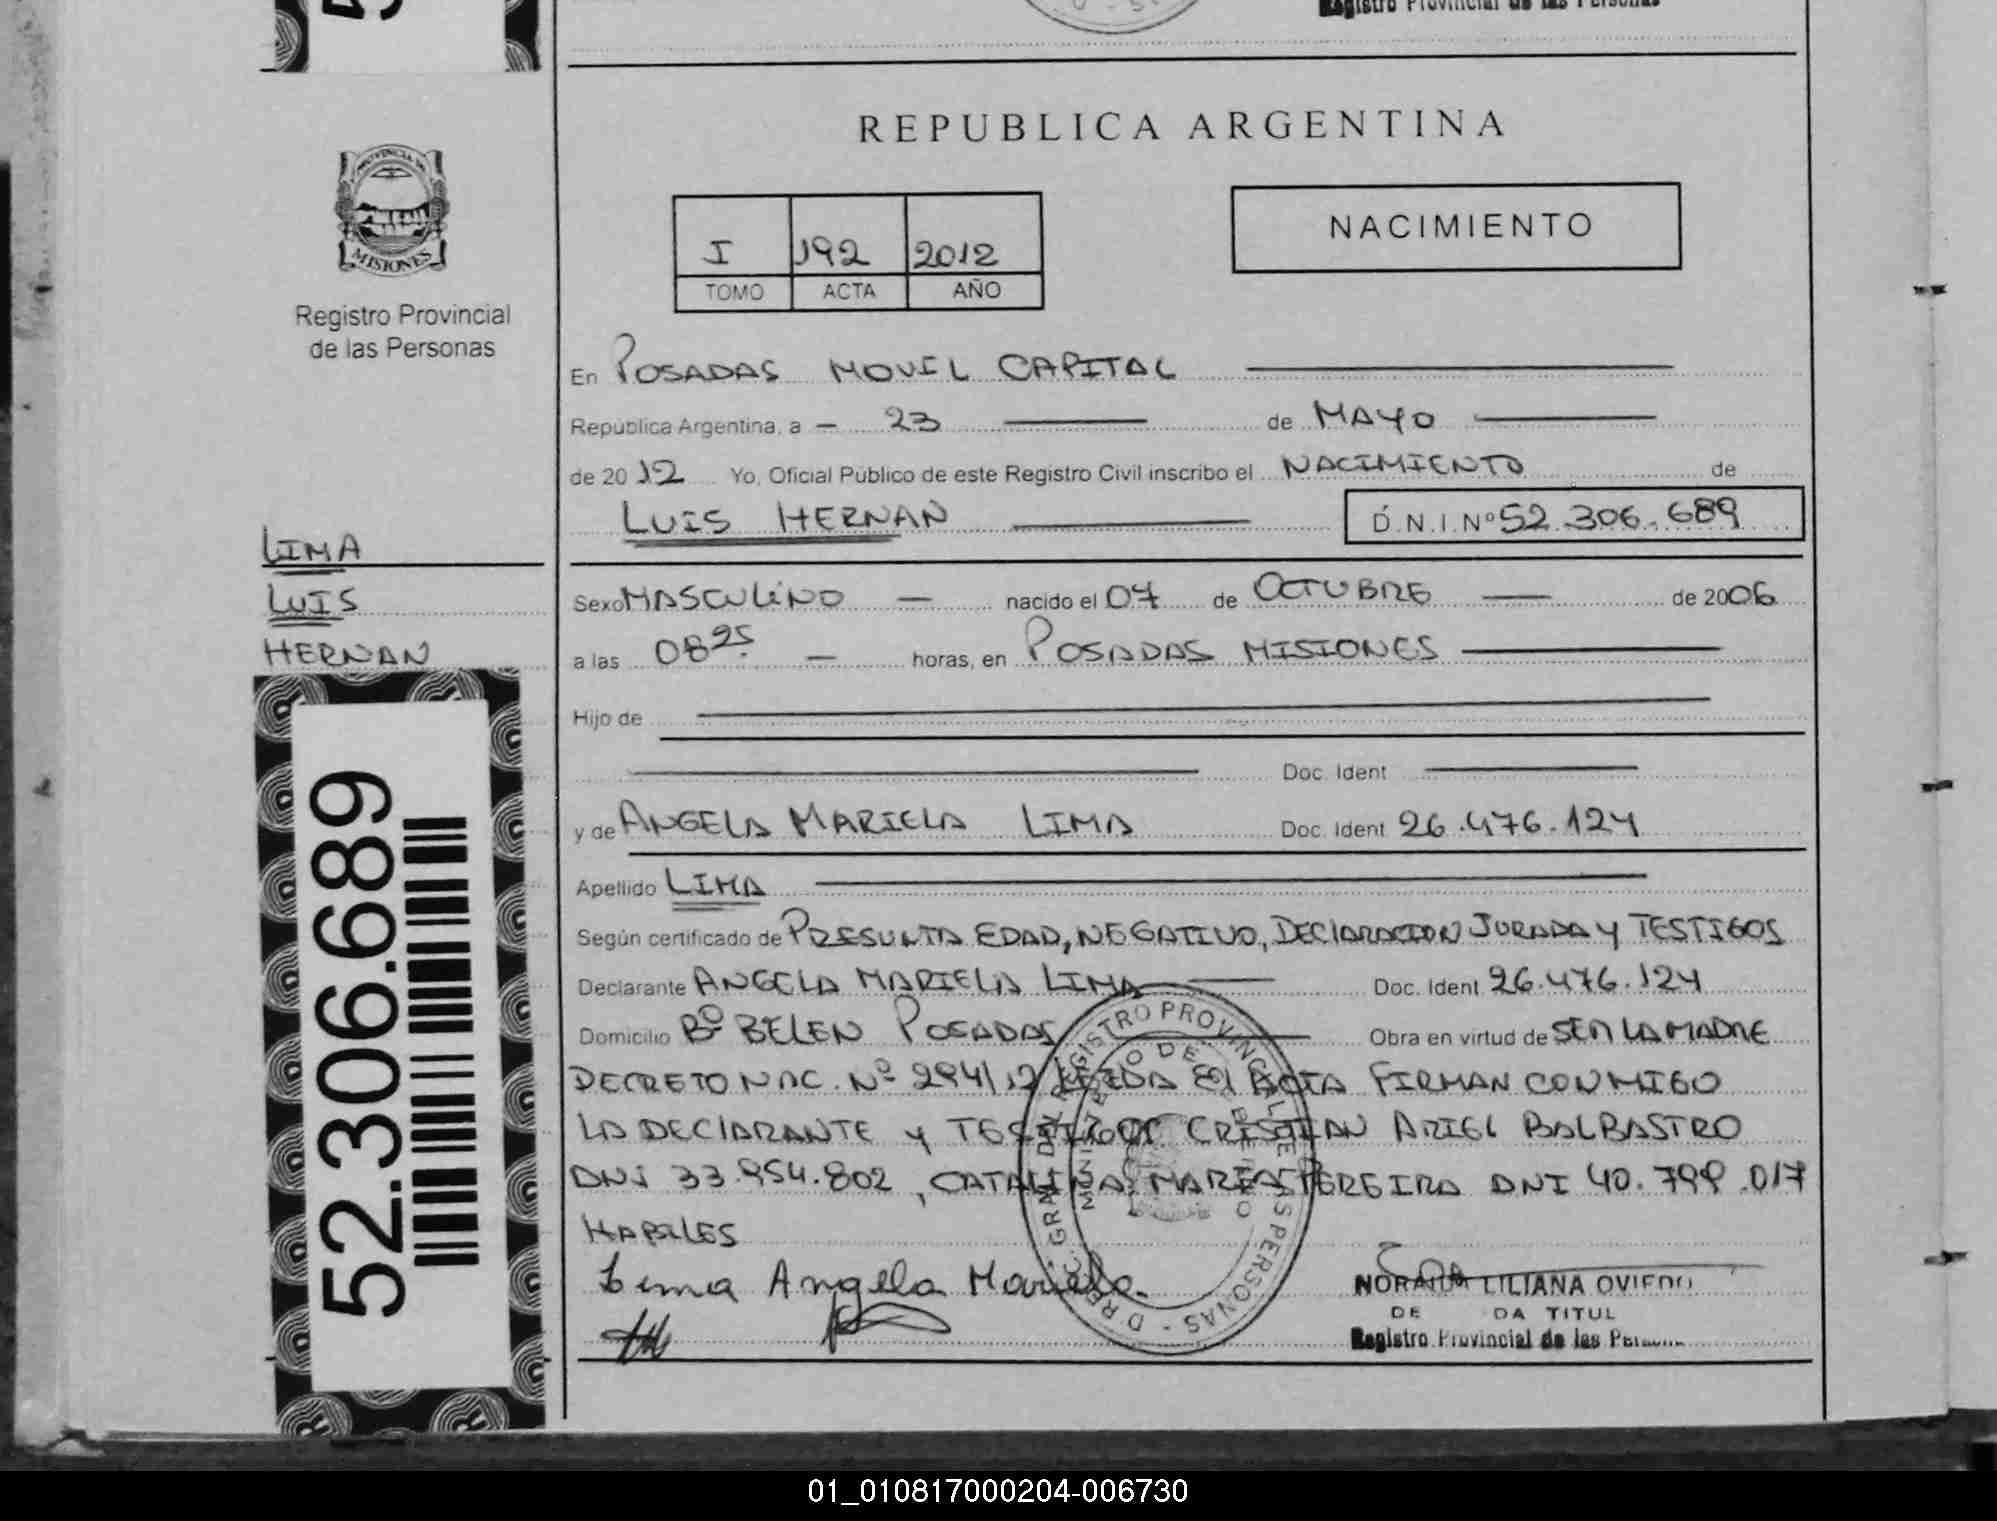 Registro Provincial de las Personas
PROVINCIA DE
MISIONES
Registro Provincial
de las Personas
REPUBLICA ARGENTINA
I 192 2012
TOMO ACTA AÑO
NACIMIENTO
En POSADAS MOVIL CAPITAL
República Argentina, a - 23 de MAYO
de 2012 Yo, Oficial Público de este Registro Civil inscribo el NACIMIENTO de
LUIS HERNAN D.N.I. Nº 52.306.689
LIMA
LUIS
HERNAN
52.306.689
Sexo MASCULINO — nacido el 07 de OCTUBRE — de 2006
a las 08 25 — horas, en POSADAS MISIONES
Hijo de
Doc. Ident
y de ANGELA MARIELA LIMA Doc. Ident 26.476.124
Apellido LIMA
Según certificado de PRESUNTA EDAD, NEGATIVO, DECLARACION JURADA Y TESTIGOS
Declarante ANGELA MARIELA LIMA Doc. Ident 26.476.124
Domicilio Bº BELEN POSADAS Obra en virtud de SER LA MADRE
DECRETO NAC. Nº 294/12 LEIDA EL ACTA FIRMAN CONMIGO
LA DECLARANTE Y TESTIGOS CRISTIAN ARIEL BALBASTRO
DNI 33.954.802, CATALINA MARIA PEREIRA DNI 40.799.017
HABILES
Lima Angela Mariela.
REGISTRO PROVINCIAL DE LAS PERSONAS
MINISTERIO DE GOBIERNO
NORAIDA LILIANA OVIEDO
DE DA TITUL
Registro Provincial de las Persona
01_010817000204-006730